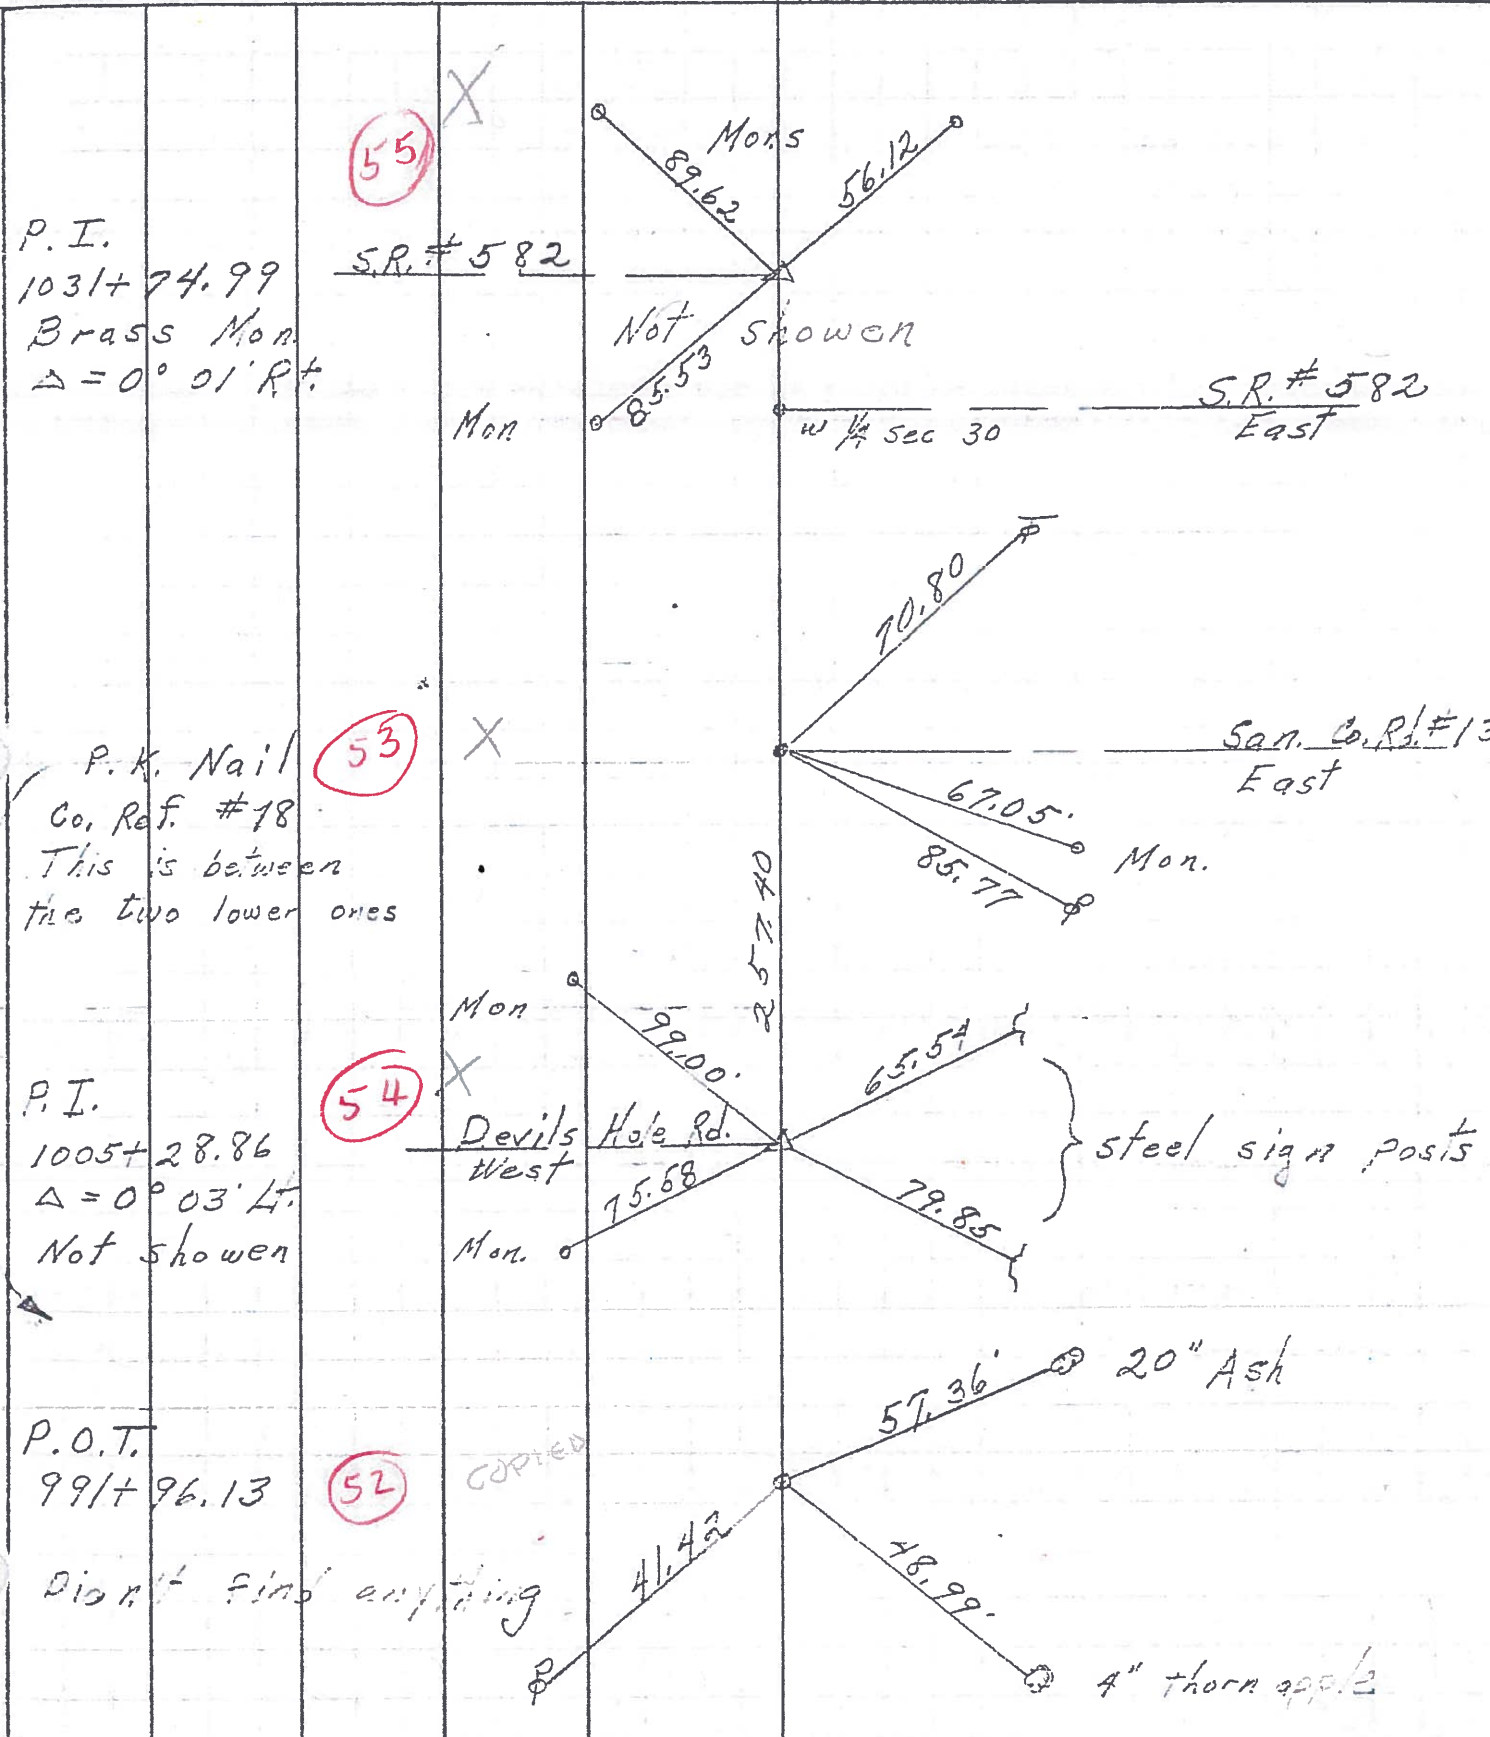 X
55
Mons
89.62
56.12
P. I.
1031+74.99
Brass Mon
Δ = 0° 01' Rt.
S.R. # 582
Not showen
85.53
Mon
w 1/4 Sec 30
S.R. # 582
East
70.80
P.K. Nail
Co. Ref. #18
This is between
the two lower ones
53
X
San. Co. Rd. #13
East
67.05'
Mon.
85.77
257.40
Mon
99.00'
65.54
P. I.
1005+28.86
Δ = 0° 03' Lt.
Not showen
54
X
Devils Hole Rd.
West
75.58
Mon.
79.85
steel sign posts
57.36'
20" Ash
P.O.T.
991+96.13
52
COPIED
41.42
48.99'
Didn't find anything
4" thorn apple